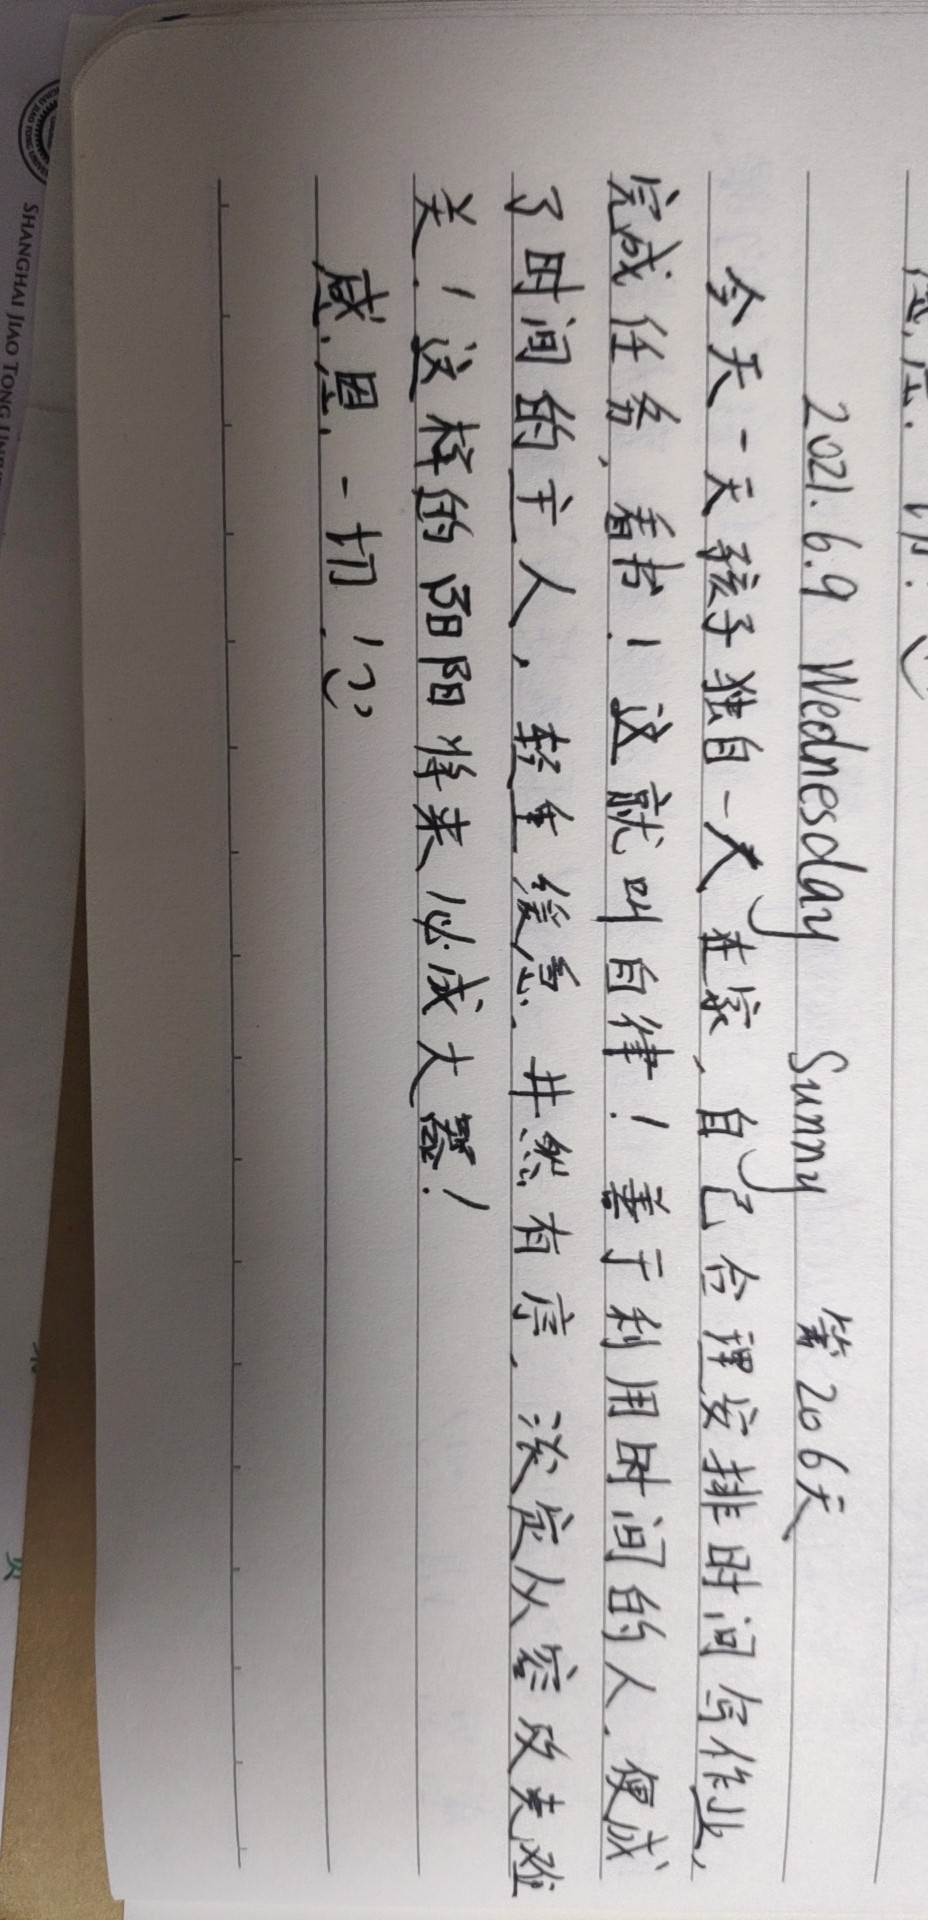 2021.6.9 Wednesday Sunny 第206天
今天一天孩子独自一人在家,自己合理安排时间写作业,
完成任务,看书!这就叫自律!善于利用时间的人,便成
了时间的主人,轻重缓急,井然有序,淡定从容攻克难
关!这样的阳阳将来必成大器!
感恩一切!
SHANGHAI JIAO TONG